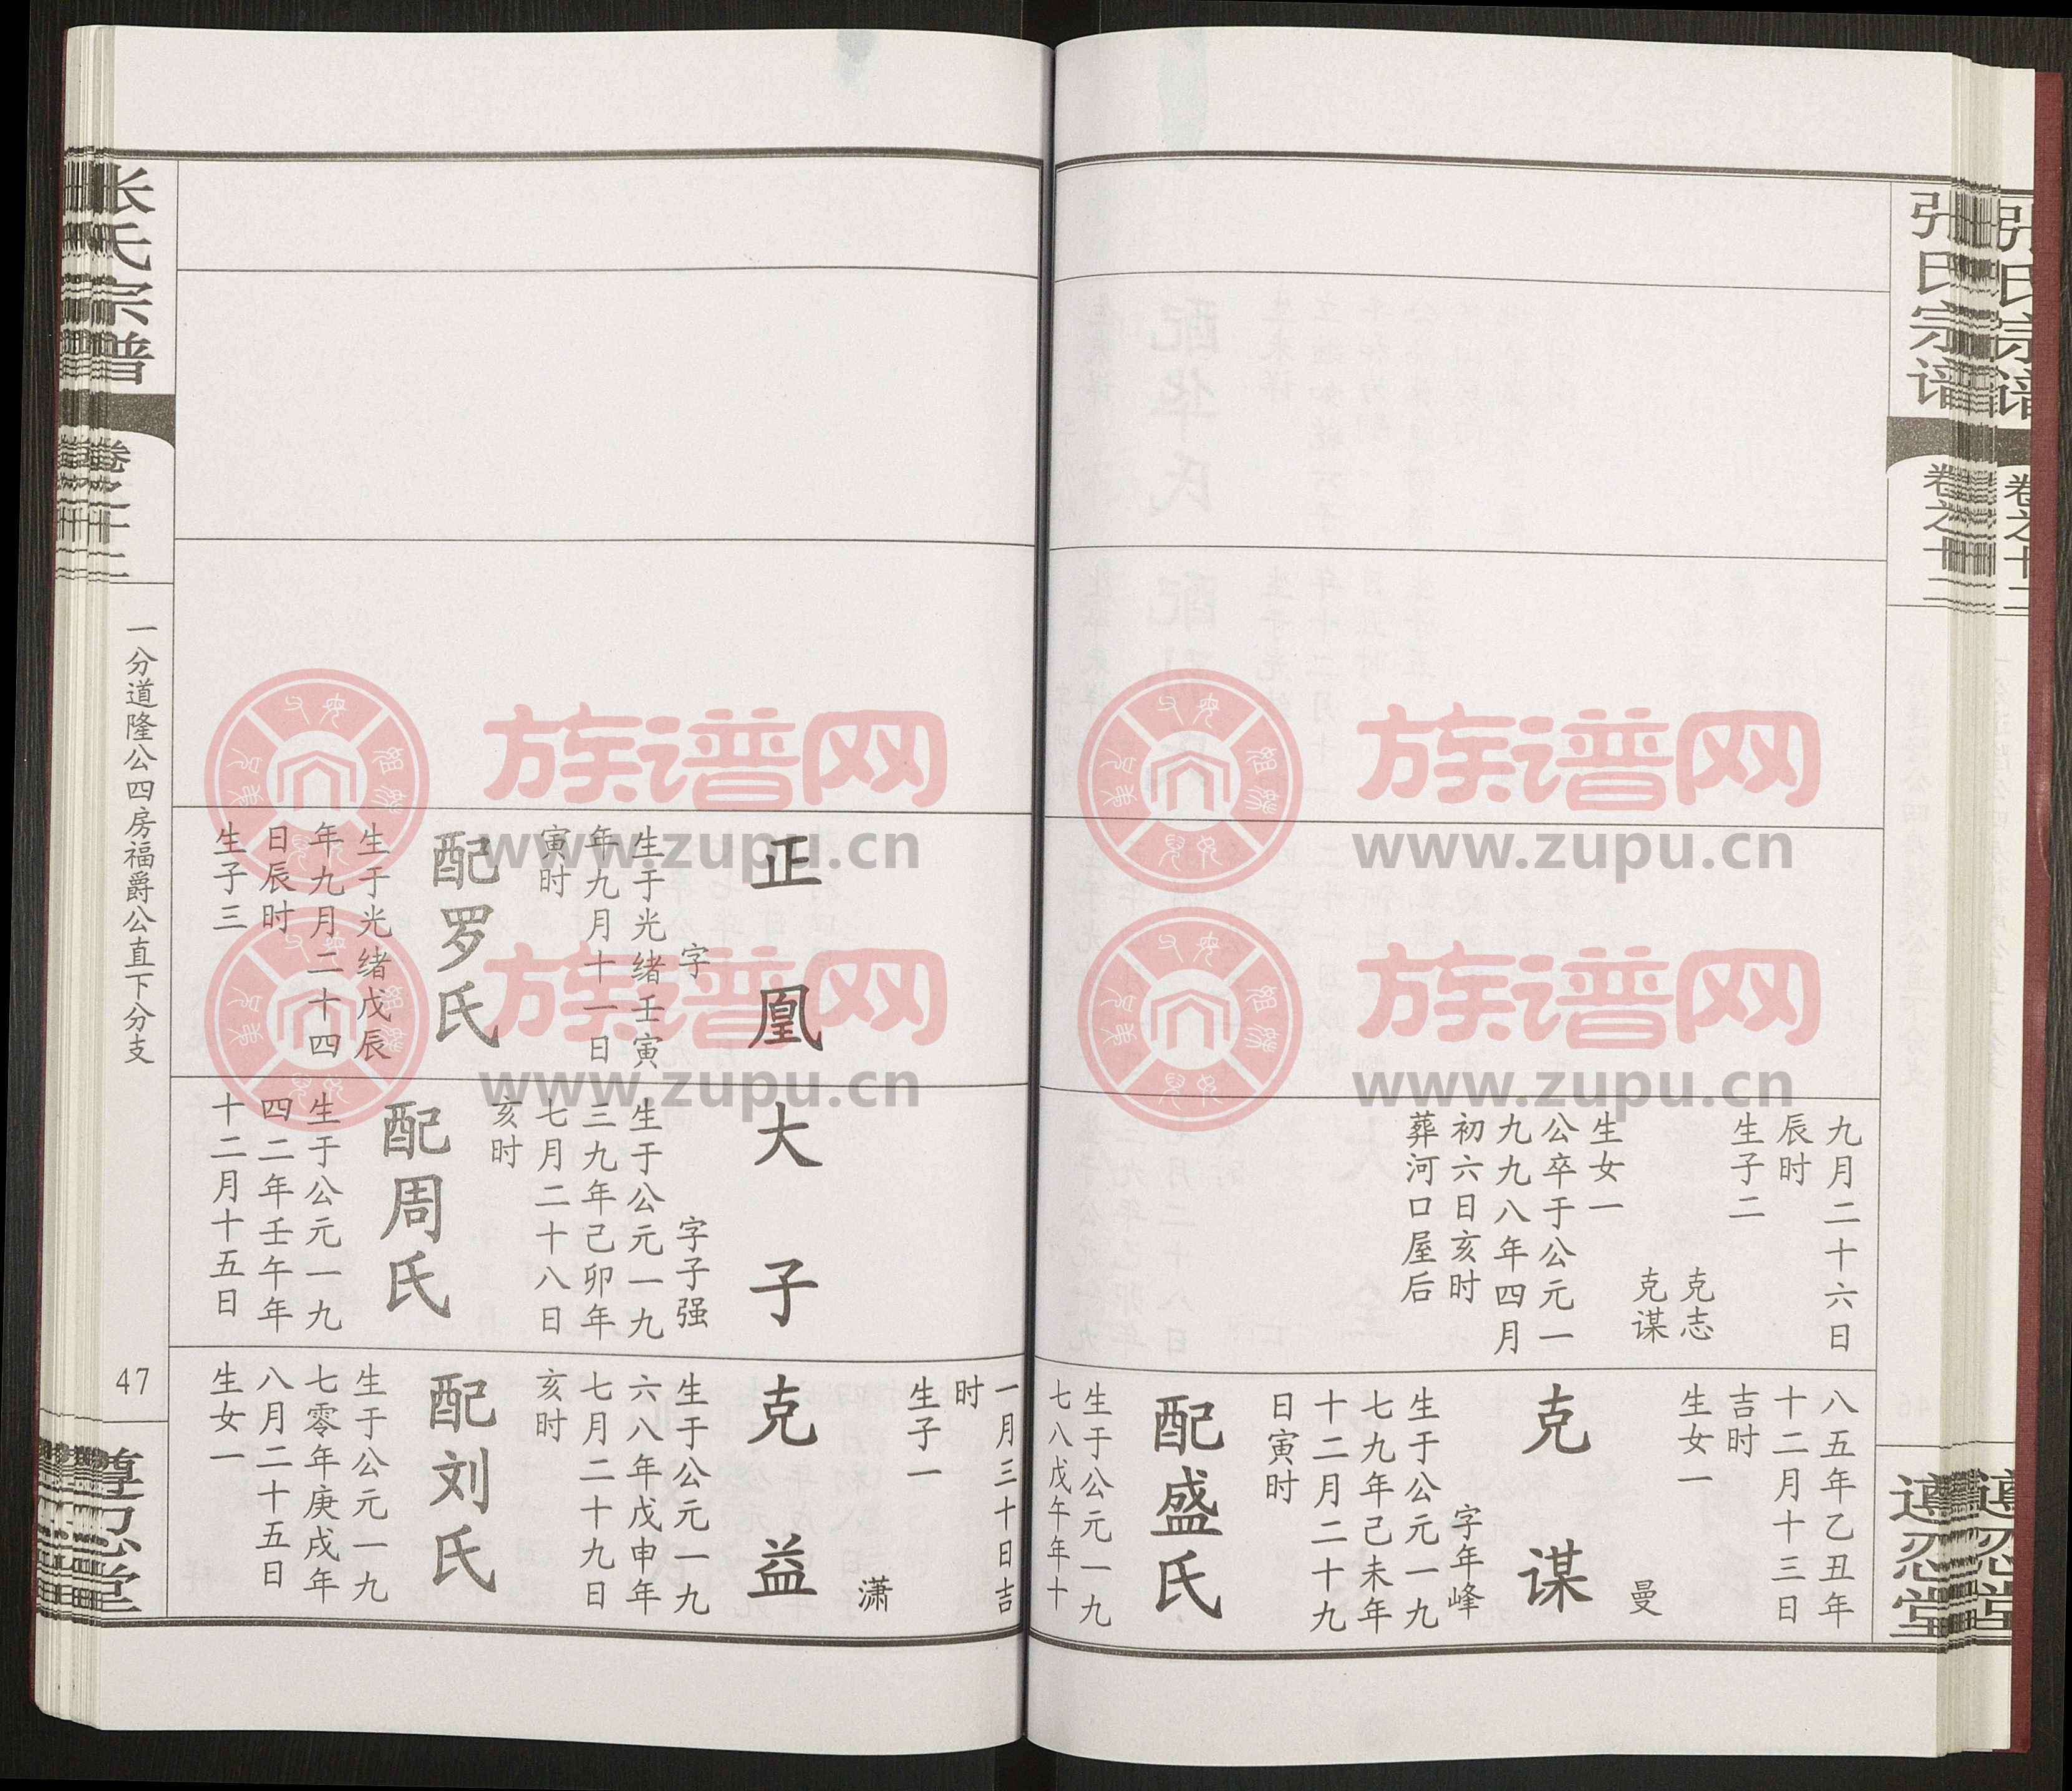 张氏宗谱
卷之十二
九月二十六日
辰时
生子二
克志
克谋
生女一
公卒于公元一
九九八年四月
初六日亥时
葬河口屋后
八五年乙丑年
十二月十三日
吉时
生女一
曼
克谋
字年峰
生于公元一九
七九年己未年
十二月二十九
日寅时
配盛氏
生于公元一九
七八戊午年十
遵忍堂
正凰
字
生于光绪壬寅
年九月十一日
寅时
配罗氏
生于光绪戊辰
年九月二十四
日辰时
生子三
大子
字子强
生于公元一九
三九年己卯年
七月二十八日
亥时
配周氏
生于公元一九
四二年壬午年
十二月十五日
一月三十日吉
时
生子一
潇
克益
生于公元一九
六八年戊申年
七月二十九日
亥时
配刘氏
生于公元一九
七零年庚戌年
八月二十五日
生女一
张氏宗谱
卷之十二
一分道隆公四房福爵公直下分支
47
遵忍堂
族谱网
www.zupu.cn
族谱网
www.zupu.cn
族谱网
www.zupu.cn
族谱网
www.zupu.cn